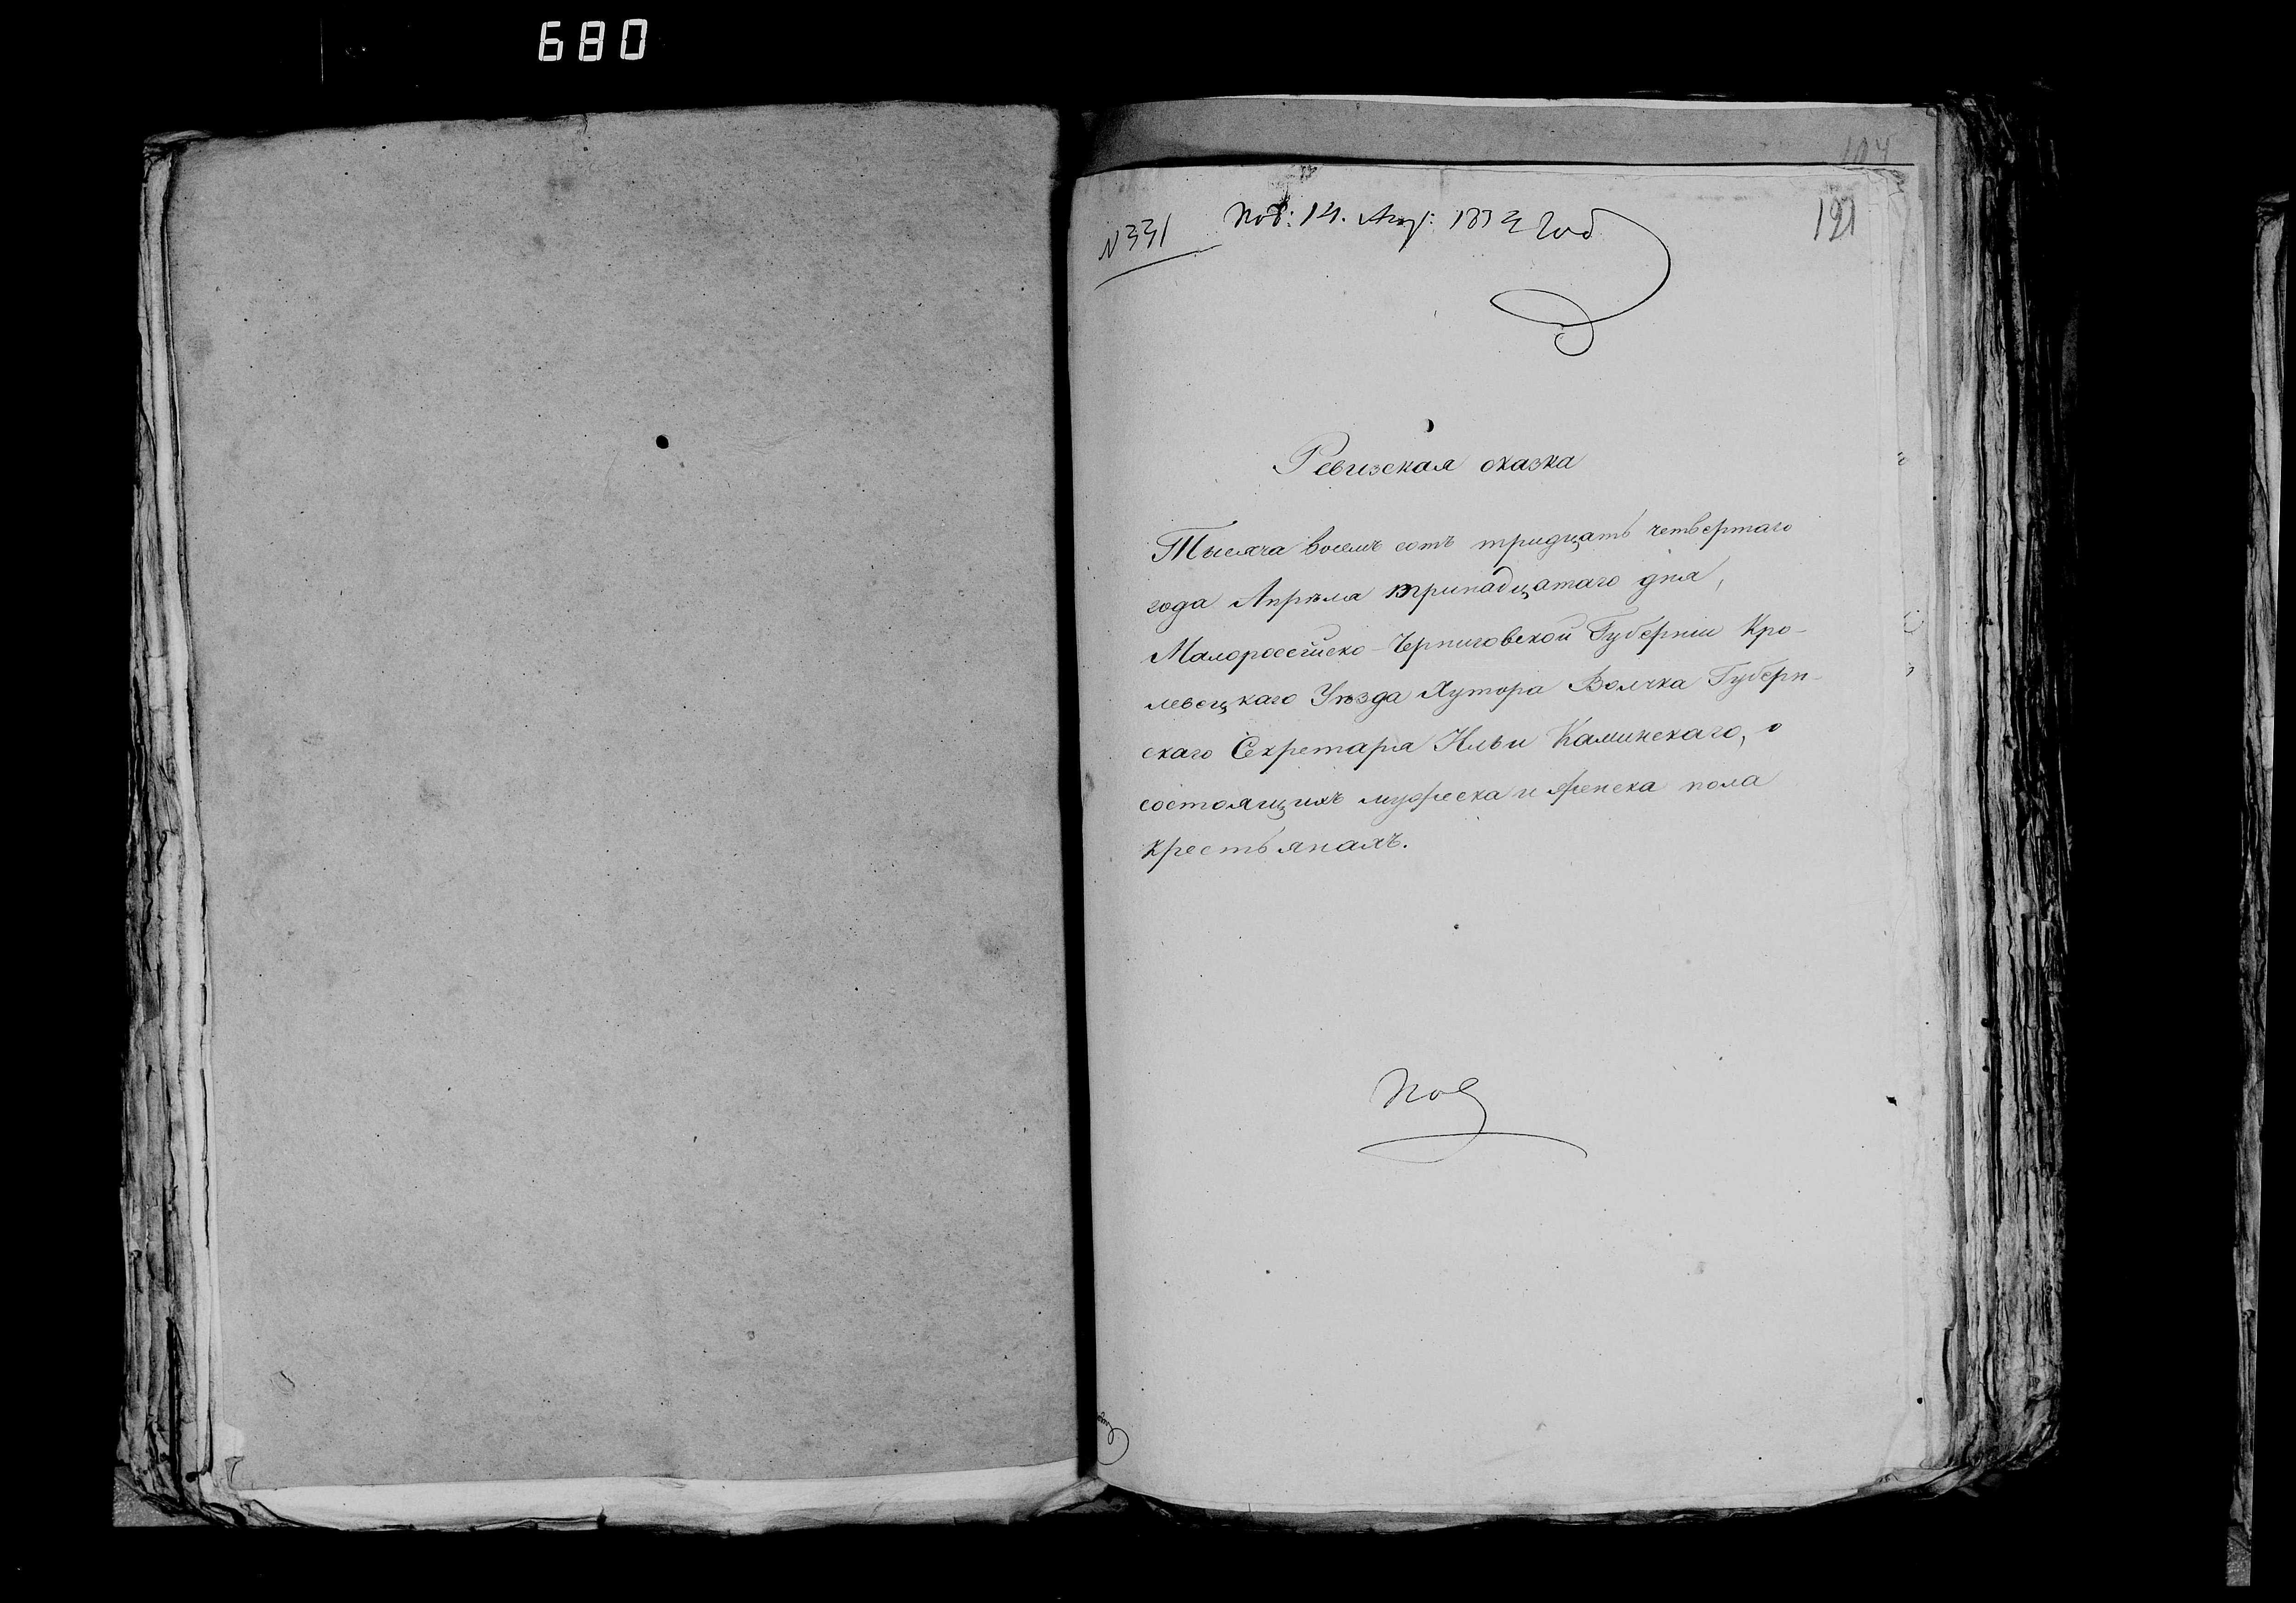 680
104
191
N 331
Под: 14. Апр: 1834 год
Ревизская сказка
Тысяча восемъ сотъ тридцать четвертаго
года Апрѣля тринадцатаго дня,
Малороссійско-Черниговской Губерніи Кро-
левецкаго Уѣзда Хутора Волчка Губерн-
скаго Секретаря Ильи Каминскаго, о
состоящихъ мужеска и женска пола
крестьянахъ.